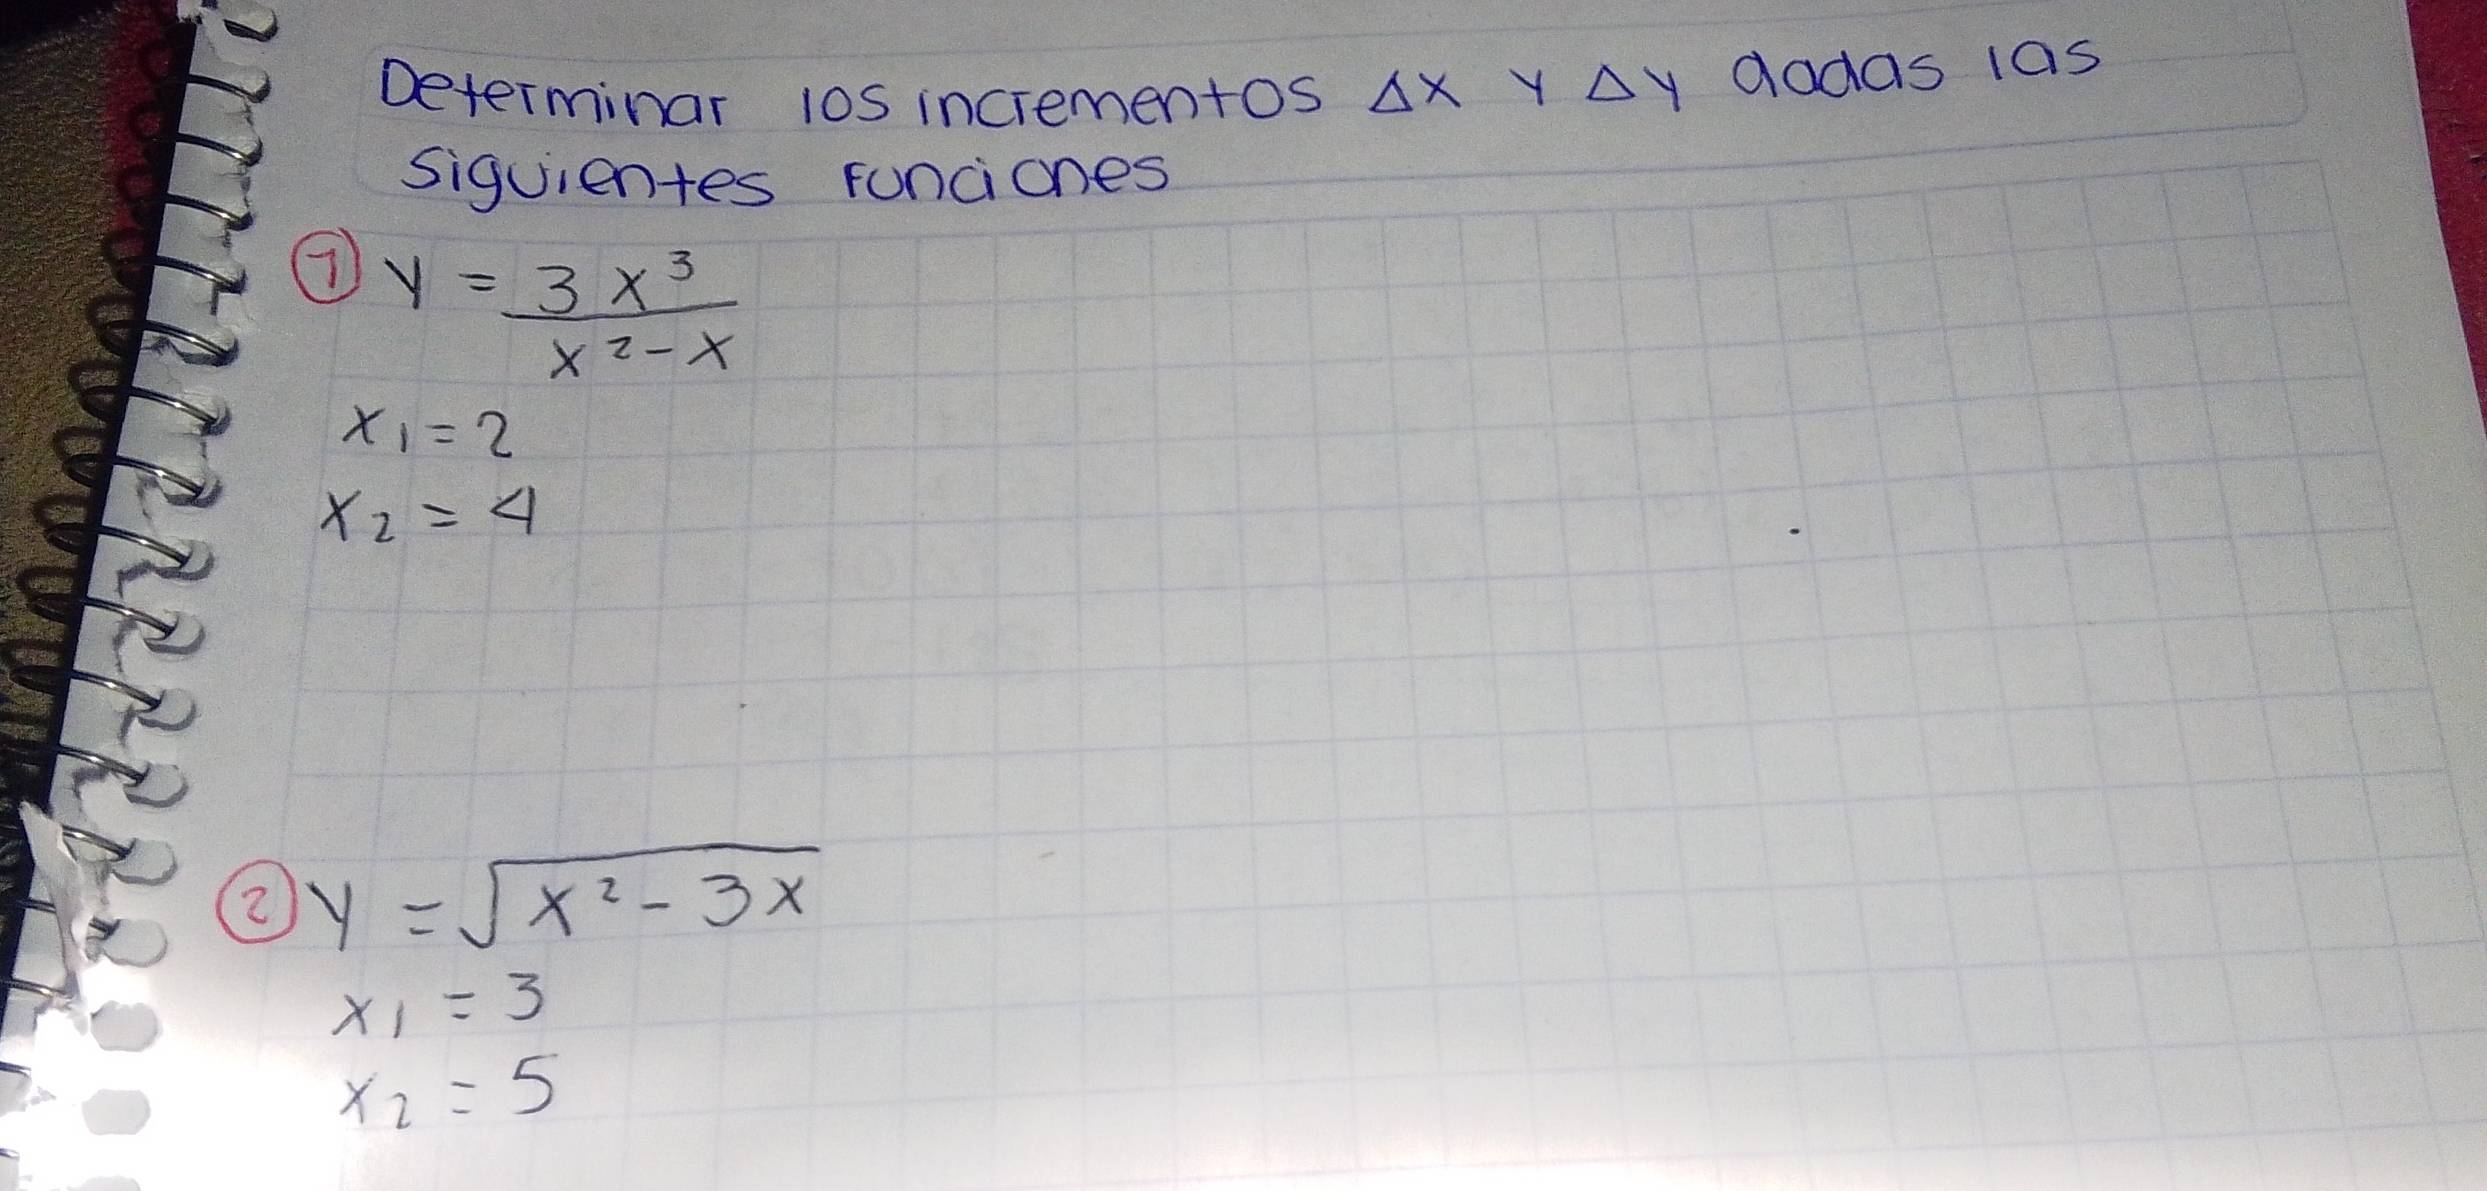 Determinar los incrementos Δx y Δy dadas las
siguientes funciones
① y = 3x³
x² - x
x₁ = 2
x₂ = 4
② y = √x² - 3x
x₁ = 3
x₂ = 5